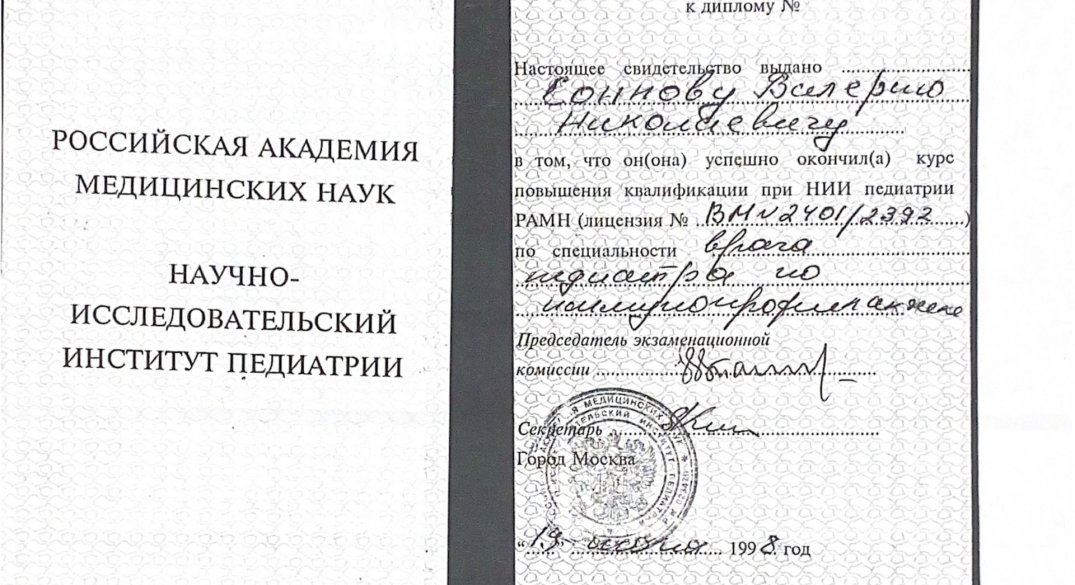 РОССИЙСКАЯ АКАДЕМИЯ
МЕДИЦИНСКИХ НАУК
НАУЧНО-
ИССЛЕДОВАТЕЛЬСКИЙ
ИНСТИТУТ ПЕДИАТРИИ
к диплому №
Настоящее свидетельство выдано
Соннову Валерию
Николаевичу
в том, что он(она) успешно окончил(а) курс
повышения квалификации при НИИ педиатрии
РАМН (лицензия № ВМ № 2401/2392)
по специальности врача
педиатра по
иммунопрофилактике
Председатель экзаменационной
комиссии
Секретарь
Город Москва
"19" 1998 год